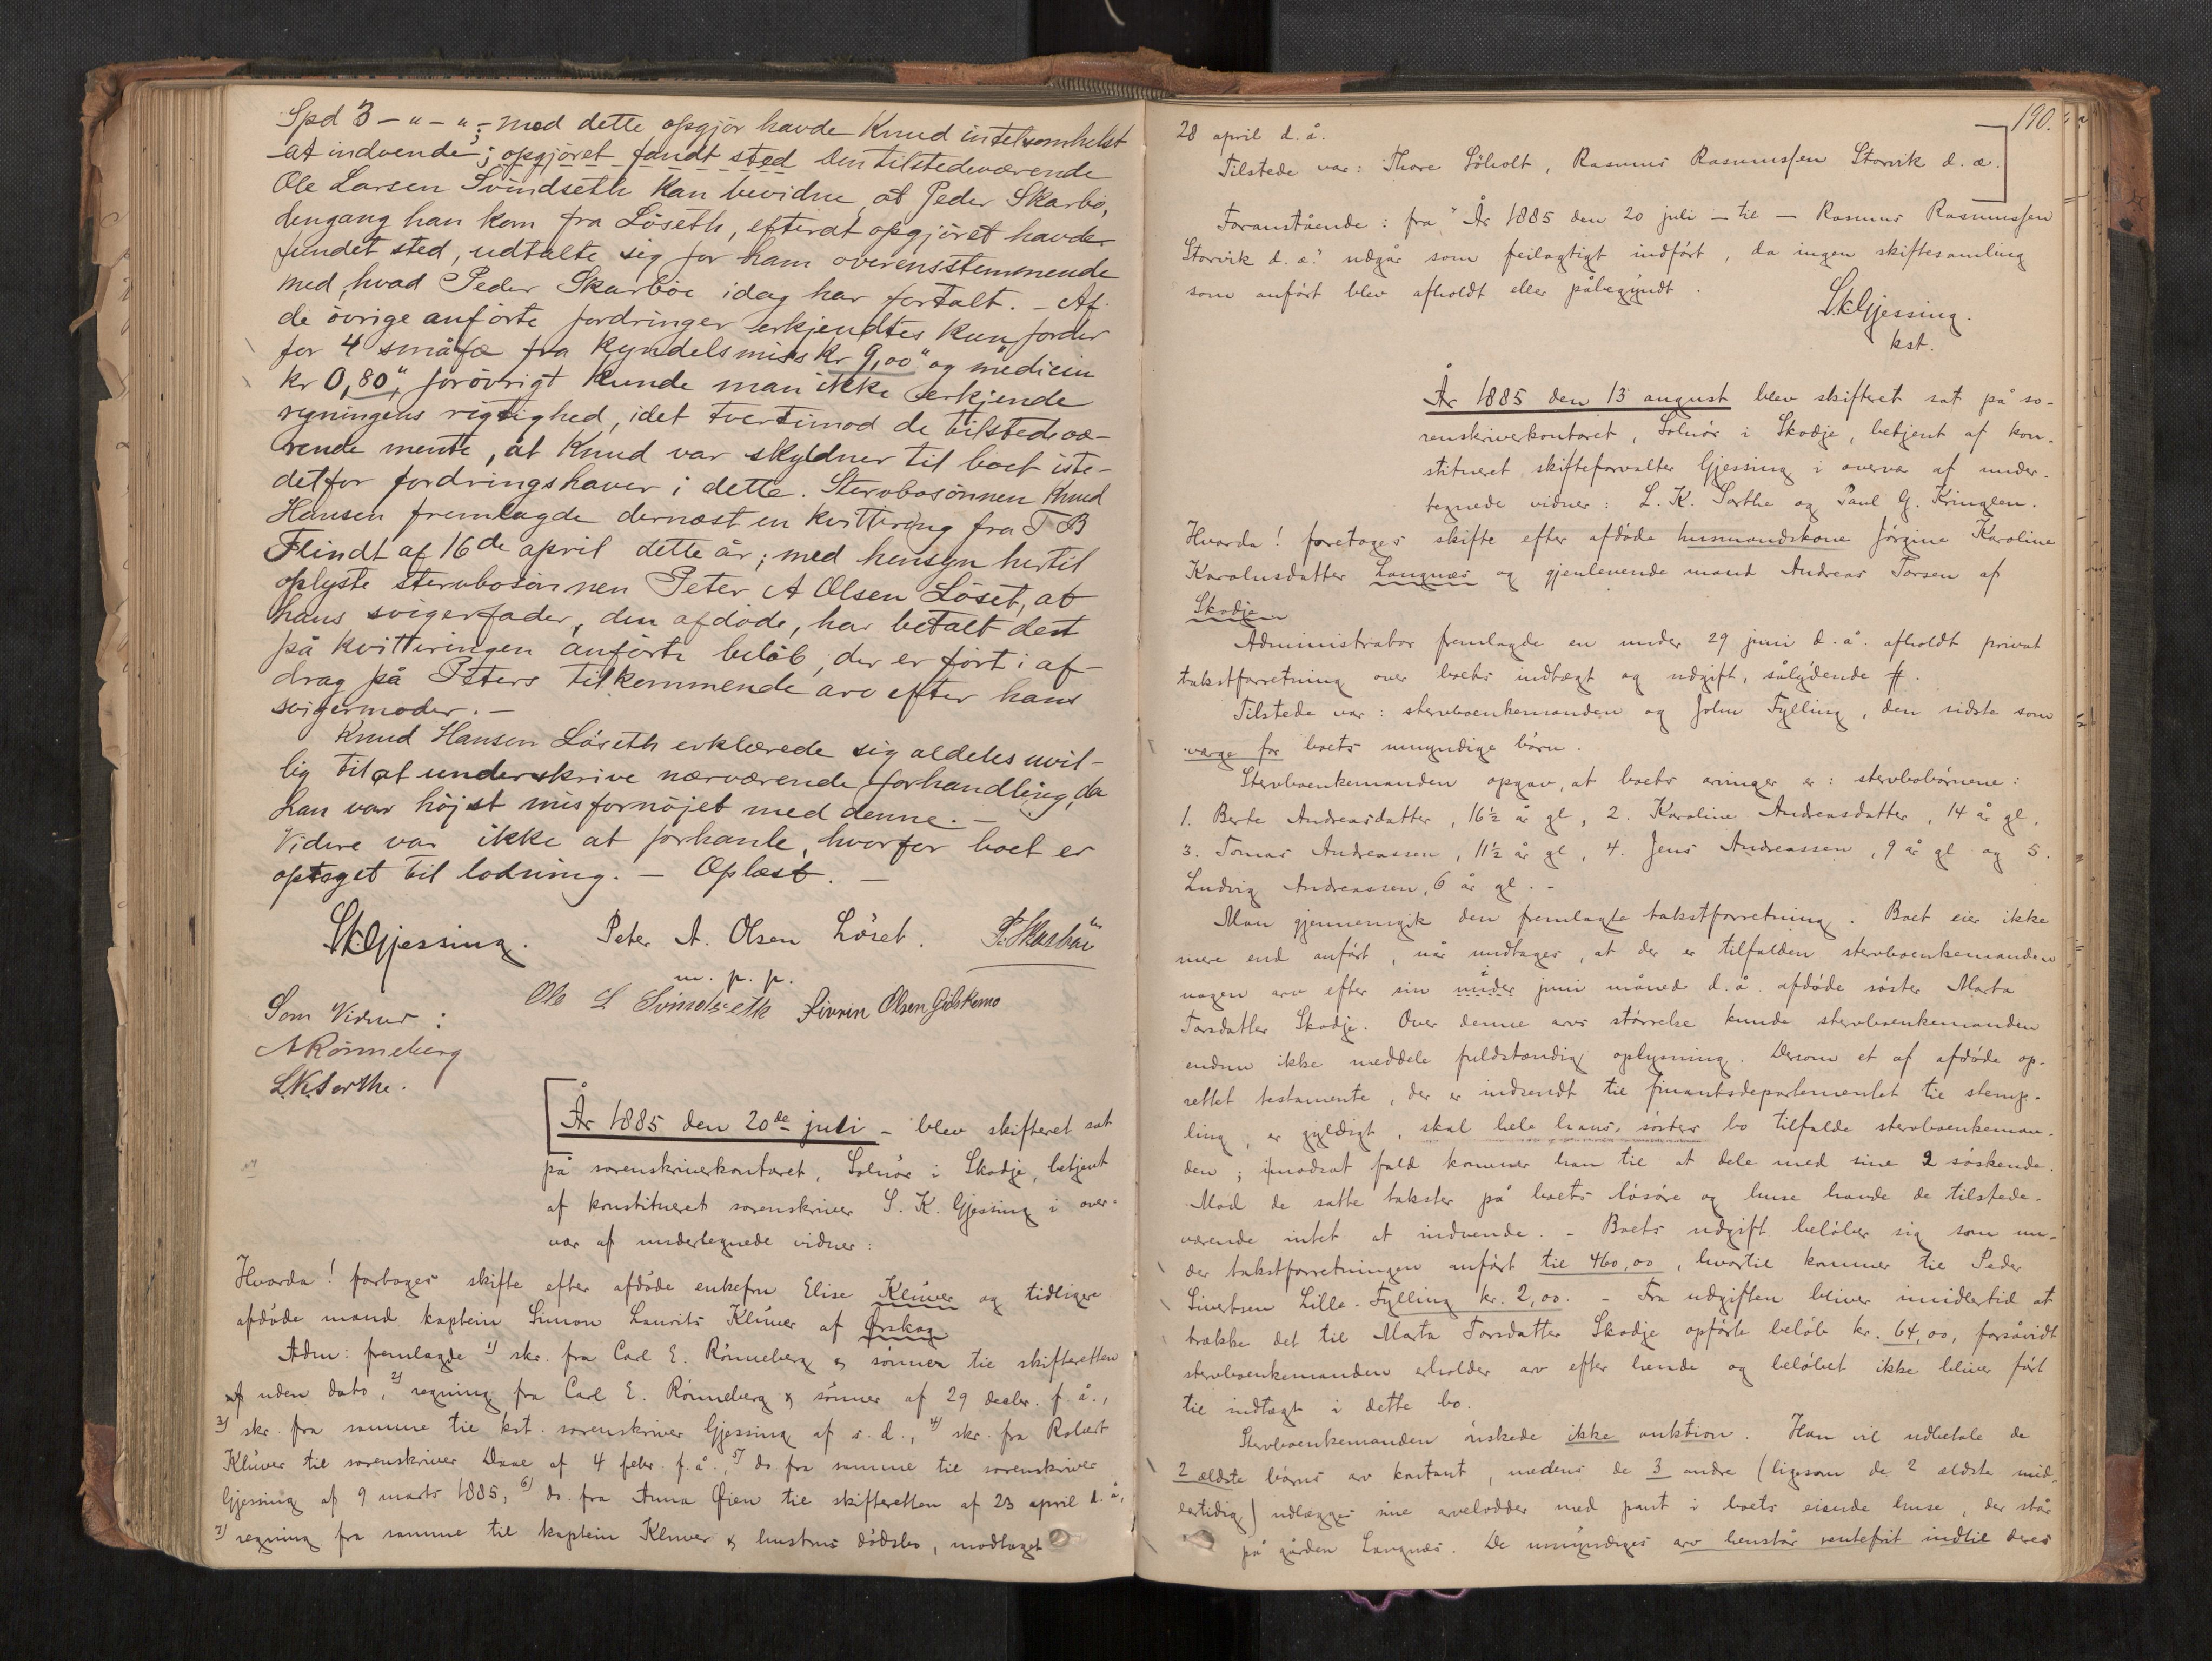 Spd 3 – " – " ; – mod dette opgjör havde Knud intetsomhelst
at indvende ; opgjöret fandt sted Den tilstedeværende
Ole Larsen Svindseth kan bevidne, at Peder Skarbö,
dengang han kom fra Löseth, efterat opgjöret havde
fundet sted, udtalte sig for ham overensstemmende
med, hvad Peder Skarböe idag har fortalt. – Af
de övrige anförte fordringer erkjendtes kun foder
for 4 småfæ fra Kyndelsmiss kr 9,00" og medicin
kr 0,80", forövrigt kunde man ikke erkjende
regningens rigtighed, idet tvertimod de tilstedevæ-
rende mente, at Knud var skyldner til boet iste-
detfor fordringshaver i dette. Stervbosönnen Knud
Hansen fremlagde dernæst en kvittering fra T B
Flindt af 16de april dette år ; med hensyn hertil
oplyste stervbosönnen Peter A Olsen Löset, at
hans svigerfader, den afdöde, har betalt det
på kvitteringen anförte belöb, der er fört i af-
drag på Peters tilkommende arv efter hans
svigermoder. –
Knud Hansen Löseth erklærede sig aldeles uvil-
lig til at underskrive nærværende forhandling, da
han var höjst misfornöjet med denne. –
Videre var ikke at forhanle, hvorfor boet er
optaget til lodning. – Oplæst. –
S.K.Gjessing. Peter A. Olsen Löset. P. Skarböe
m. p. p.
Ole L Svindseth Sivrin Olsen Gidskemo
Som Vidner :
A Rönneberg
L.K.Sorthe.
År 1885 den 20de juli – blev skifteret sat
på sorenskriverkontoret, Solnör i Skodje, betjent
af konstitueret sorenskriver S. K. Gjessing i over-
vær af undertegnede vidner :
Hvorda ! foretoges skifte efter afdöde enkefru Elise Klüwer og tidligere
afdöde mand kaptein Simon Laurits Klüwer af Ørskog
Adm: fremlagde 1) skr. fra Carl E. Rönneberg & sönner til skifteretten
uden dato, 2) regning fra Carl E. Rönneberg & sönner af 29 decbr. f. å.,
3) skr. fra samme til kst. sorenskriver Gjessing af s. d., 4) skr. fra Robert
Klüwer til sorenskriver Daae af 4 febr. f. å., 5) do. fra samme til sorenskriver
Gjessing af 9 marts 1885, 6) do. fra Anna Øien til skifteretten af 23 april d. å,
7) regning fra samme til kaptein Kluwer & hustrus dödsbo, modtaget
190.
28 april d. å.
Tilstede var : Thore Söholt, Rasmus Rasmussen Storvik d. æ.
Foranstående : fra "År 1885 den 20 juli – til – Rasmus Rasmussen
Storvik d. æ." udgår som feilagtigt indfört, da ingen skiftesamling
som anfört blev afholdt eller påbegyndt.
S.K.Gjessing.
kst.
År 1885 den 13 august blev skifteret sat på so-
renskriverkontoret, Solnör i Skodje, betjent af kon-
stitueret skifteforvalter Gjessing i overvær af under-
tegnede vidner : L. K. Sorthe og Paul G. Kringlen.
Hvorda ! foretoges skifte efter afdöde husmandskone Jörgine Karoline
Karolusdatter Langnæs og gjenlevende mand Andreas Torsen af
Skodje
Administrator fremlagde en under 29 juni d. å. afholdt privat
takstforretning over boets indtægt og udgift, sålydende #.
Tilstede var : stervboenkemanden og John Fylling, den sidste som
værge for boets umyndige börn.
Stervboenkemanden opgav, at boets arvinger er : stervbobörnene :
1. Berte Andreasdatter, 16½ år gl, 2. Karoline Andreasdatter, 14 år gl,
3. Tomas Andreassen, 11½ år gl, 4. Jens Andreassen, 9 år gl og 5.
Ludvig Andreassen, 6 år gl. –
Man gjennemgik den fremlagte takstforretning. Boet eier ikke
mere end anfört, når undtages, at der er tilfalden stervboenkemanden
nogen arv efter sin under i juni måned d. å. afdöde söster Marta
Torsdatter Skodje. Over denne arvs störrelse kunde stervboenkemanden
endnu ikke meddele fuldstændig oplysning. Dersom et af afdöde op-
rettet testamente, der er indsendt til finantsdepartementet til stemp-
ling, er gyldigt, skal hele hans sösters bo tilfalde stervboenkeman-
den ; i modsat fald kommer han til at dele med sine 2 söskende.
Mod de satte takster på boets lösöre og huse havde de tilstede-
værende intet at indvende. – Boets udgift belöber sig som un-
der takstforretningen anfört til 460,00, hvortil kommer til Peder
Sivertsen Lille-Fylling kr. 2,00. – Fra udgiften bliver imidlertid at
trække det til Marta Torsdatter Skodje opförte belöb kr. 64,00, forsåvidt
stervboenkemanden erholder arv efter hende og belöbet ikke bliver fört
til indtægt i dette bo.
Stervboenkemanden önskede ikke auktion. Han vil udbetale de
2 ældste börns arv kontant, medens de 3 andre (ligesom de 2 ældste mid-
lertidig) udlægges sine arvelodder med pant i boets eiende huse, der står
på gården Langnæs. De umyndiges arv henstår rentefrit indtil deres